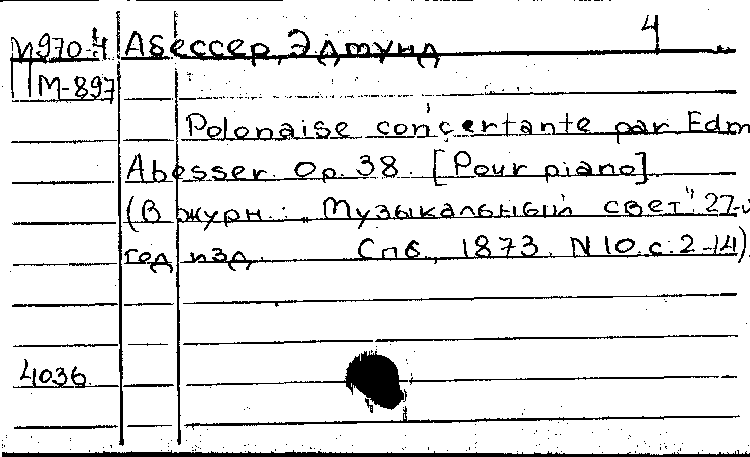 4
М970-4 Абессер, Эдмунд
М-897
Polonaise concertante par Edm
Abesser. Op. 38. [Pour piano]
(В журн.: „Музыкальный свет". 27-й
год изд. Спб., 1873. N 10. с. 2-14)
4036